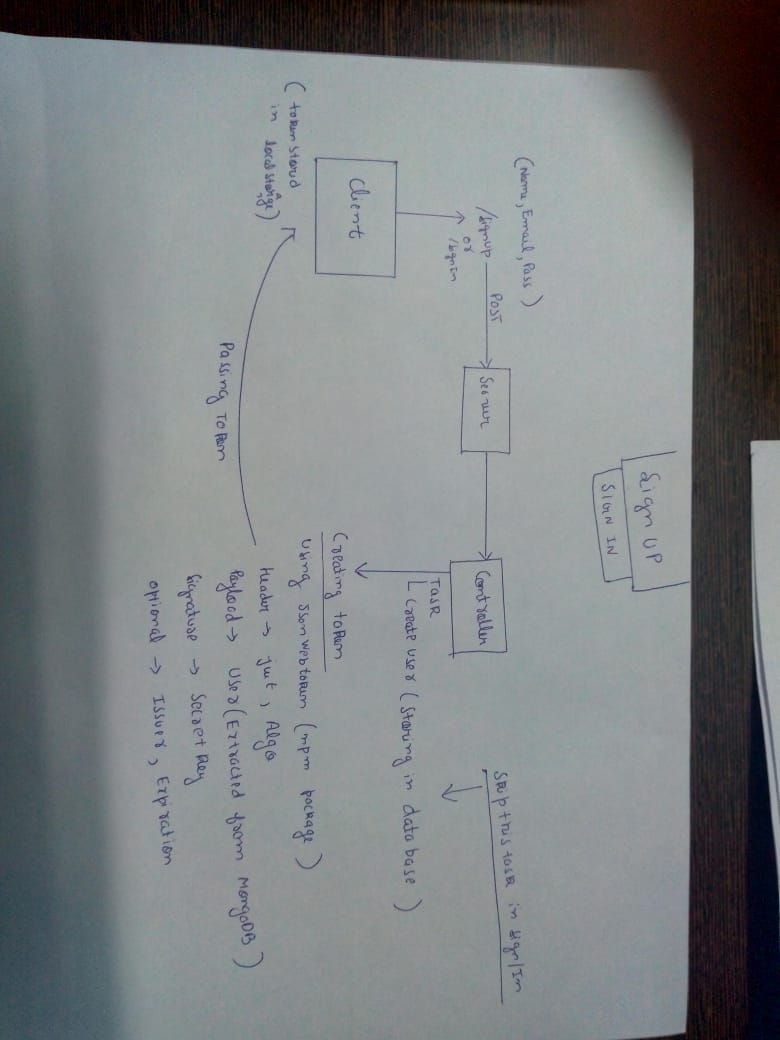 Sign UP
SIGN IN
(Name, Email, Pass)
/signup
or
/signin
POST
Server
Controller
Skip this task in Sign/In
Task
Create user (Storing in database)
Client
(token stored
in local storage)
Creating token
Using Jsonwebtoken (npm package)
Header → jwt, Algo
Payload → User (Extracted from MongoDB)
Signature → Secret Key
Optional → Issuer, Expiration
Passing Token